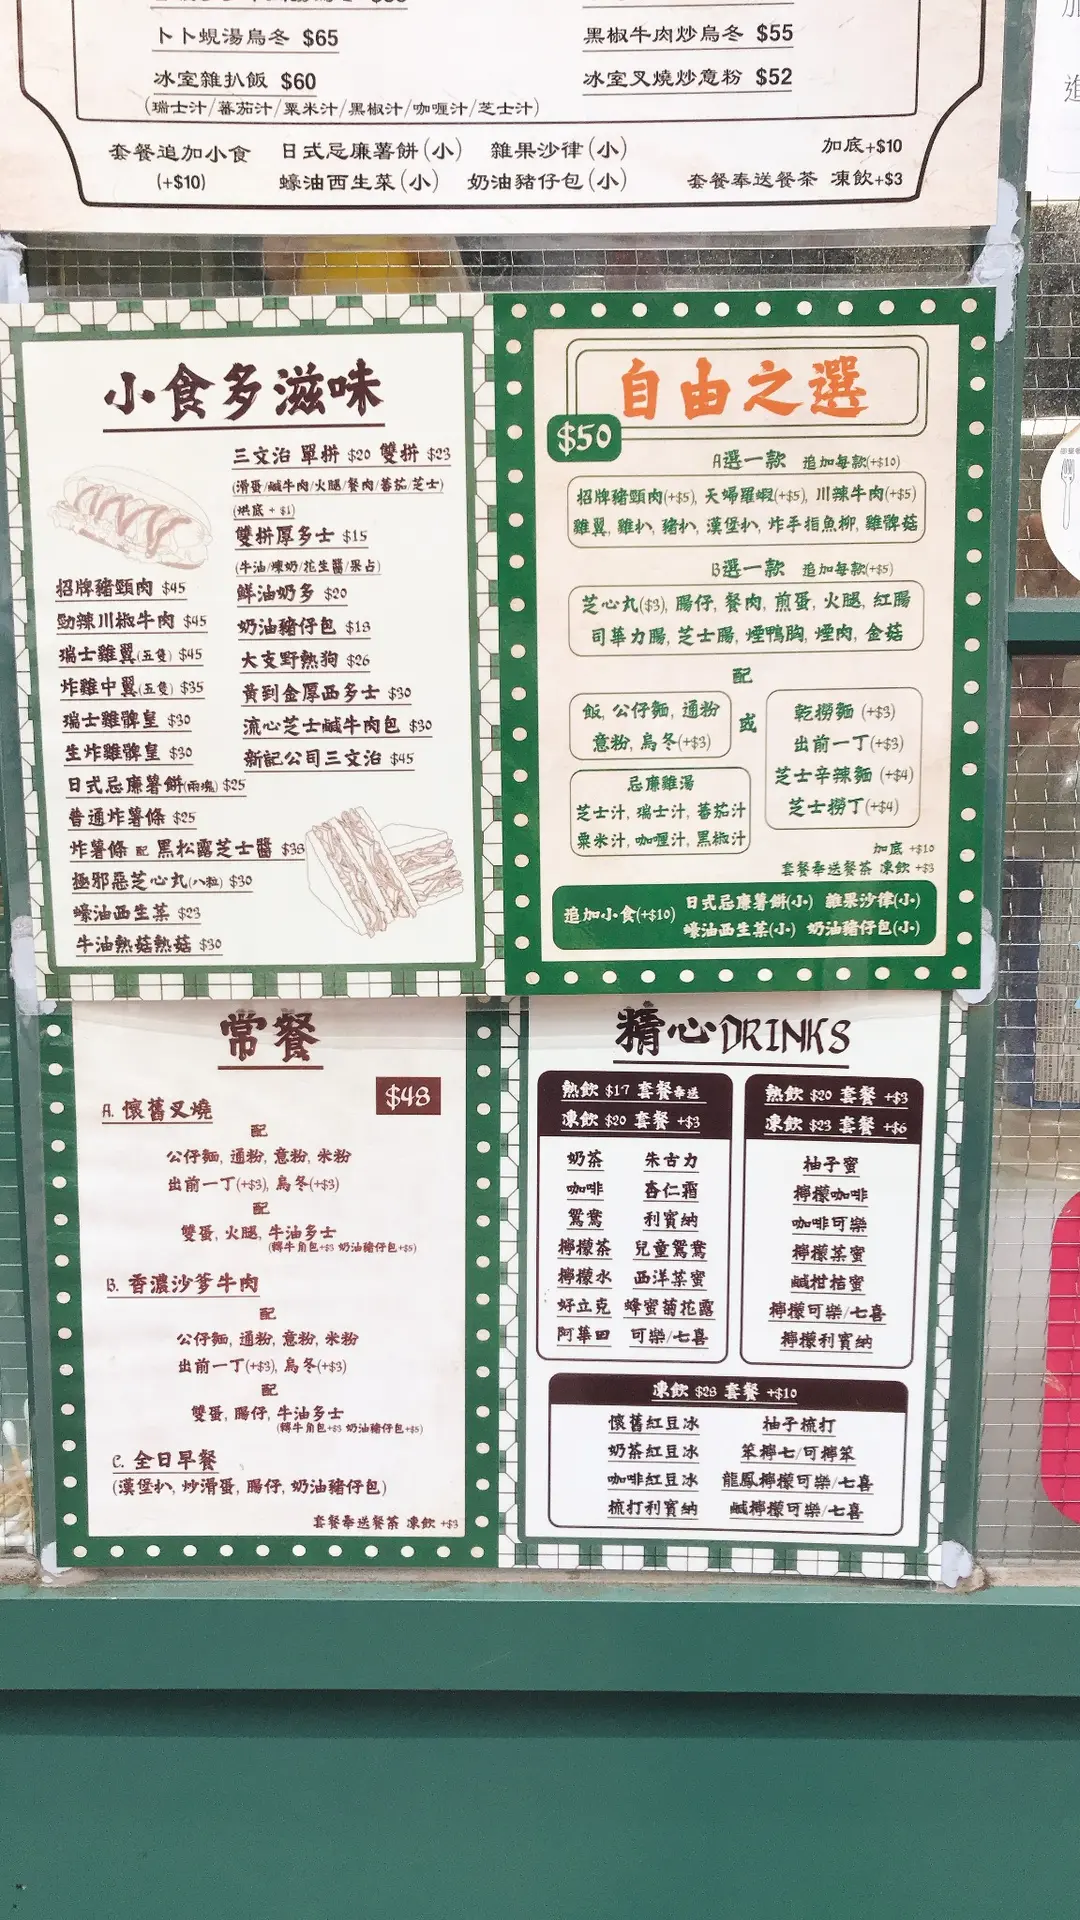 卜卜蜆湯烏冬 $65
黑椒牛肉炒烏冬 $55
冰室雜扒飯 $60
冰室叉燒炒意粉 $52
(瑞士汁/蕃茄汁/粟米汁/黑椒汁/咖喱汁/芝士汁)
套餐追加小食 日式忌廉薯餅(小) 雜果沙律(小)
(+$10) 蠔油西生菜(小) 奶油豬仔包(小)
加底+$10
套餐奉送餐茶 凍飲+$3
小食多滋味
三文治 單拼 $20 雙拼 $23
(滑蛋/鹹牛肉/火腿/餐肉/蕃茄/芝士)
(烘底 + $1)
雙拼厚多士 $15
(牛油/煉奶/花生醬/果占)
鮮油奶多 $20
奶油豬仔包 $18
大支野熱狗 $26
黃到金厚西多士 $30
流心芝士鹹牛肉包 $30
新記公司三文治 $45
招牌豬頸肉 $45
勁辣川椒牛肉 $45
瑞士雞翼(五隻) $45
炸雞中翼(五隻) $35
瑞士雞髀皇 $30
生炸雞髀皇 $30
日式忌廉薯餅(兩塊) $25
普通炸薯條 $25
炸薯條 配 黑松露芝士醬 $38
極邪惡芝心丸(八粒) $30
蠔油西生菜 $23
牛油熱菇熱菇 $30
自由之選
$50
A選一款 追加每款(+$10)
招牌豬頸肉(+$5), 天婦羅蝦(+$5), 川辣牛肉(+$5)
雞翼, 雞扒, 豬扒, 漢堡扒, 炸手指魚柳, 雞髀菇
B選一款 追加每款(+$5)
芝心丸($3), 腸仔, 餐肉, 煎蛋, 火腿, 紅腸
司華力腸, 芝士腸, 煙鴨胸, 煙肉, 金菇
配
飯, 公仔麵, 通粉
意粉, 烏冬(+$3)
或
乾撈麵 (+$3)
出前一丁(+$3)
芝士辛辣麵 (+$4)
芝士撈丁(+$4)
忌廉雞湯
芝士汁, 瑞士汁, 蕃茄汁
粟米汁, 咖喱汁, 黑椒汁
加底 +$10
套餐奉送餐茶 凍飲 +$3
追加小食(+$10) 日式忌廉薯餅(小) 雜果沙律(小)
蠔油西生菜(小) 奶油豬仔包(小)
常餐
$48
A. 懷舊叉燒
配
公仔麵, 通粉, 意粉, 米粉
出前一丁(+$3), 烏冬(+$3)
配
雙蛋, 火腿, 牛油多士
(轉牛角包+$3 奶油豬仔包+$5)
B. 香濃沙爹牛肉
配
公仔麵, 通粉, 意粉, 米粉
出前一丁(+$3), 烏冬(+$3)
配
雙蛋, 腸仔, 牛油多士
(轉牛角包+$3 奶油豬仔包+$5)
C. 全日早餐
(漢堡扒, 炒滑蛋, 腸仔, 奶油豬仔包)
套餐奉送餐茶 凍飲 +$3
精心DRINKS
熱飲 $17 套餐奉送
凍飲 $20 套餐 +$3
奶茶 朱古力
咖啡 杏仁霜
鴛鴦 利賓納
檸檬茶 兒童鴛鴦
檸檬水 西洋菜蜜
好立克 蜂蜜菊花露
阿華田 可樂/七喜
熱飲 $20 套餐 +$3
凍飲 $23 套餐 +$6
柚子蜜
檸檬咖啡
咖啡可樂
檸檬菜蜜
鹹柑桔蜜
檸檬可樂/七喜
檸檬利賓納
凍飲 $28 套餐 +$10
懷舊紅豆冰 柚子梳打
奶茶紅豆冰 笨檸七/可檸笨
咖啡紅豆冰 龍鳳檸檬可樂/七喜
梳打利賓納 鹹檸檬可樂/七喜